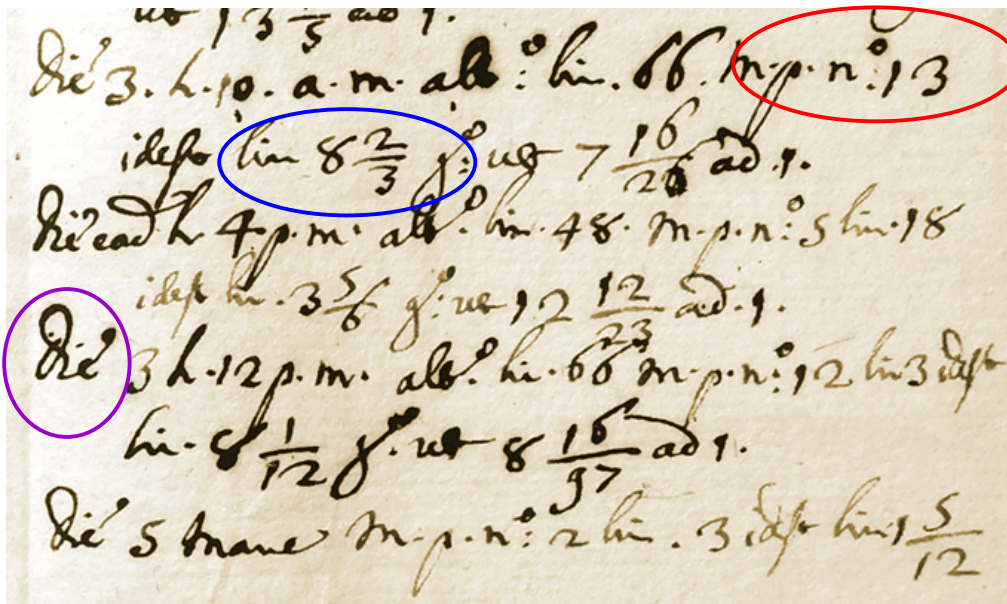 ut 13 1/3 ad 1.
Die 3. h. 10. a. m. alb.º: lin. 66. m. p. nº: 13
idest lin 8 2/3 gº: ut 7 16/26 ad 1.
Die ead h. 4. p. m. alb.º lin. 48. m. p. nº: 5 lin. 18
idest lin. 3 5/6 gº: ut 12 12/23 ad. 1.
Die 3 h. 12 p. m. alb.º li. 66 m. p. nº: 12 lin 3 idest
lin. 8 1/12 gº. ut 8 16/97 ad 1.
Die 5 mane m. p. nº: 2 lin. 3 idest lin 1 5/12